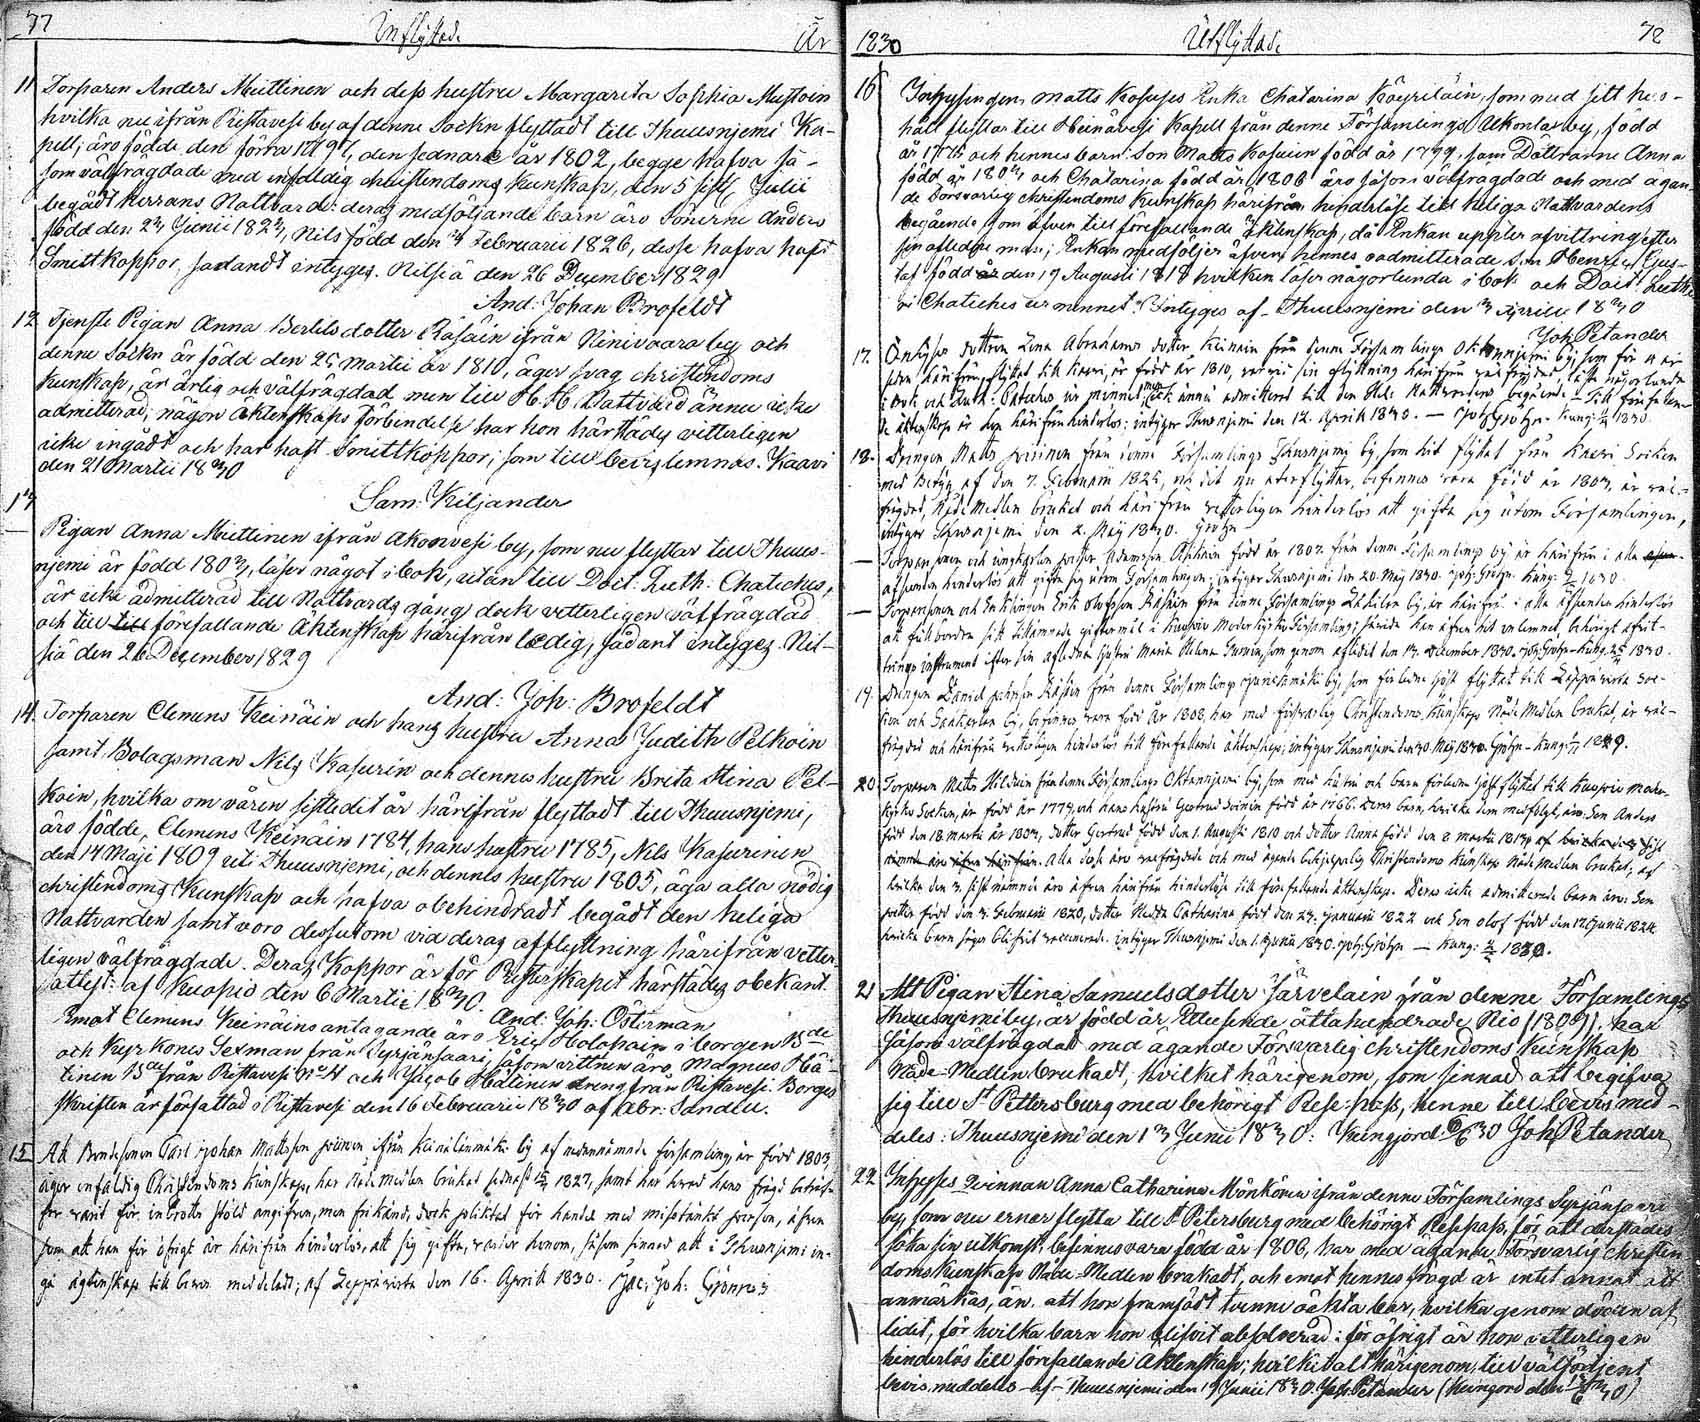 77 Inflyttade År
11 Torparen Anders Miettinen och dess hustru Margareta Sophia Mustoin
hvilka nu ifrån Ristavesi by af denne Sockn flyttadt till Thuusnjemi Ka-
pell, äro födde den förra 1797, den sednare år 1802, begge hafva så-
som välfrägdade med enfaldig christendoms kunskap, den 5 sistl. Julii
begådt Herrans Nattvard: deras medföljande barn äro Sönerne Anders
född den 23 Junii 1823, Nils född den 24 Februarii 1826, desse hafva haft
Smittkoppor, sådandt intyges. Nilsiä den 26 December 1829
And: Johan Brofeldt
12 Tjenste Pigan Anna Bertils dotter Räsäin ifrån Niinivaara by och
denne Sockn är född den 25 Martii år 1810, äger svag christendoms
kunskap, är ärlig och välfrägdad men till H. H. Nattvard ännu icke
admitterad; någon äktenskaps förbindelse har hon härstädes vitterligen
icke ingådt och har haft Smittkoppor; som till bevis lemnas. Kaavi
den 21 Martii 1830
Sam: Kiljander
13
Pigan Anna Miettinen ifrån Akonvesi by, som nu flyttar till Thuus-
njemi är född 1803, läser något i bok, utan till Doct: Luth: Chateches,
är icke admitterad till Nattvards gång dock vetterligen välfrägdad
och till till förefallande Äktenskap härifrån ledig, sådant intyges. Nil-
siä den 26 December 1829
And: Joh: Brofeldt
14. Torparen Clemens Keinäin och hans hustru Anna Judith Pelkoin
samt Bolagsman Nils Kasurin och dennes hustru Brita Stina Pel-
koin, hvilka om våren sistledit år härifrån flyttadt till Thuusnjemi,
äro födde, Clemens Keinäin 1784, hans hustru 1785, Nils Kasurinen
den 14 Maji 1809 uti Thuusnjemi, och dennes hustru 1805, äga alla nödig
christendoms Kunskap och hafva obehindradt begådt den heliga
Nattvarden samt voro dessutom vid deras afflyttning härifrån vetter-
ligen välfrägdade. Deras Koppor är för Presterskapet härstädes obekant.
attest: af Kuopio den 6 Martii 1830. And: Joh: Österman
Emot Clemens Keinäins antagande äro Eric Holopain i borgen 15de
och Kyrkones Sexman från Syrjänsaari, såsom vittnen äro, Magnus Hä-
tinen 15de från Ristavesi No 4 och Jacob Hätinen dreng från Ristavesi. Borges
skriften är författad i Ristavesi den 16 Februarii 1830 af Abr: Sandlu.
15 Att Bondesonen Carl Johan Mattsson ifrån Keinälänmäki by af nedannämnde församling är född 1803,
äger enfaldig Christendoms kunskap, har Nådemedlen brukat sednast 1827, samt har hvad hans frägd beträf-
far varit för inbrotts stöld angifven, men frikänd, dock pliktat för handel med misstänkt person, äfven
som att han för öfrigt är härifrån hinderlös, att sig gifta, varder honom, såsom sinnad att i Thusnjemi in-
gå äktenskap till bevis meddelat; af Leppävirta den 16. April 1830. Jac: Joh: Grönros

1830 Utflyttade 78
16 Inhysingen Matts Kosuses Enka Chatarina Köyriläin, som med sitt hus-
håll flyttar till Heinävesi Kapell från denne Församlings Ukonlax by, född
år 1775 och hennes barn: Son Matts Kosuin född år 1799, sam Döttrarne Anna
född år 1803, och Chatarina född år 1806 äro såsom välfrägdade och med ägan-
de Försvarlig christendoms Kunskap härifrån hinderlöse till heliga Nattvardens
begående som äfven till förefallande Äktenskap, då Enkan uppter afvittring efter
sin afledne man; Enkan medföljer äfven hennes oadmitterade Son Henric Gus-
taf född år den 17 Augusti 1818 hvilken läser någorlunda i bok och Doct: Luthe-
ri Chateches ur minnet. Intyges af Thuusnjemi den 3 Aprill 1830
Joh Petander
17. Inhyses dottren Lena Abrahams dotter Keinäin från denne Församlings Oktannjemi by, som för 4 år
sedan härifrån flyttat till Kaavi, är född år 1810, var vid sin flyttning härifrån välfrägdad, läste någorlunda
i bok och Luth: Cateches ur minnet men ännu admitterad till den Hel. Nattvardens begående. Till förefallan-
de äktenskap är hon härifrån hinderlös: intyger Thusnjemi den 12. April 1830. — Joh: Grohn. Kung: 1830
18. Drängen Matts från denne Församlings Thusnjemi by, som hit flyttat från Kaavi Socken
med Betyg af den 7. Februarii 1825, nu dit återflyttar, befinnes vara född år 1803, är väl-
frägdad, Nåde Medlen brukat och härifrån vetterligen hinderlös att gifta sig utom Församlingen,
intyger Thusnjemi den 2. Maj 1830. Grohn
— Torparesonen och ungkarlen Petter Adamsson Räsänen född år 1807. från denne Församlings by är härifrån i alla
afseenden hinderlös att gifta sig utom Församlingen; intyger Thusnjemi den 20. Maj 1830. Joh: Grohn. Kung: 1830.
— Torparesonen och Enklingen Erik Olofsson Räsänen från denne Församlings by, är härifrån i alla afseenden hinderlös
att fullborda sitt tillämnade giftermål i Kuopio Moderkyrko Församling; hvarvid han äfven hit inlemnat behörigt afvit-
trings instrument efter sin afledna hustru Maria Helena, som genom afledit den 17. December 1830. Joh: Grohn. Kung. 1830.
19. Drängen Daniel Johnsson Räsäin från denne Församlings Juurikkamäki by, som förledne höst flyttat till Leppävirta Soc-
ken och Sarkamäki by, befinnes vara född År 1808, har med försvarlig Christendoms Kunskap Nåde Medlen brukat, är väl-
frägdad och härifrån vetterligen hinderlös till förefallande äktenskap; intyger Thusnjemi den 30 Maj 1830. Grohn — Kung: 1829.
20. Torparen Matts Hilduin från denne Församlings Oktannjemi by, som med hustru och barn förleden höst flyttat till Kuopio Moder-
kyrko Socken, är född År 1779, och hans hustru Gertrud Soinin född år 1766. Deras barn, hvilka dem medfölgt, äro: Son Anders
född den 18. Martii år 1804, dotter Gertrud född den 1. Augusti 1810 och dotter Anna född den 2 Martii 1813, af hvilka de sist
nämnde äro äfven härifrån. Alla dessa äro välfrägdade och med ägande behjelpelig Christendoms Kunskap Nåde Medlen brukat; af
hvilka den 3. sist nämnde äro äfven härifrån hinderlöse till förefallande äktenskap. Deras icke admitterade barn äro: Son
Petter född den 3. Februarii 1820, dotter Hedda Catharina född den 23. Januarii 1822 och Son Olof född den 12. Junii 1824.
hvilka barn säges blifvit vaccinerade. intyger Thusnjemi den 1. Junii 1830. Joh: Grohn — Kung: 1830.
21 Att Pigan Stina Samuelsdotter Järveläin från denne Församlings
Thuusnjemi by, är född år Ettusende åttahundrade Nio (1809), har
såsom välfrägdad med ägande Försvarlig christendoms Kunskap
Nåde-Medlen brukadt, hvilket härigenom, som sinnad att begifva
sig till St Pettersburg med behörigt Rese-pass, henne till bevis med-
deles: Thuusnjemi den 13 Junii 1830: Kungjord 6/6 30 Joh Petander
22 Inhyses Qvinnan Anna Catharina Mönköin ifrån denne Församlings Syrjänsaari
by, som nu ernar flytta till St Petersburg med behörigt Respass, för att derstädes
söka sin utkomst, befinnes vara född år 1806, har med ägande Försvarlig christen
doms Kunskap Nåde-Medlen brukadt, och emot hennes frägd är intet annat att
anmärkas, än att hon framfödt tvenne oäkta barn, hvilka genom döden af
ledit, för hvilka barn hon blifvit absolverad: för öfrigt är hon vetterligen
hinderlös till förefallande Äktenskap; hvilket alt härigenom, till välförtjent
bevis meddeles af Thuusnjemi den 19 Junii 1830. Joh: Petander (Kungjord den 13/6 30)